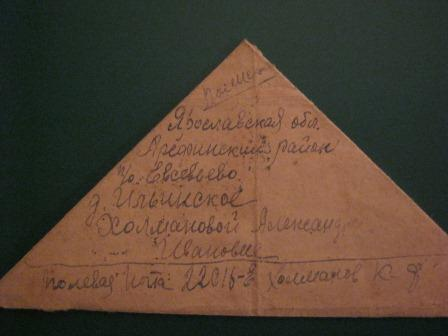 Ярославская обл.
Арефинский район
п/о. Евсевьево,
д. Ильинское
Холмановой Александре
Ивановне
полевая почта 22016-Е Холманов К. Ф